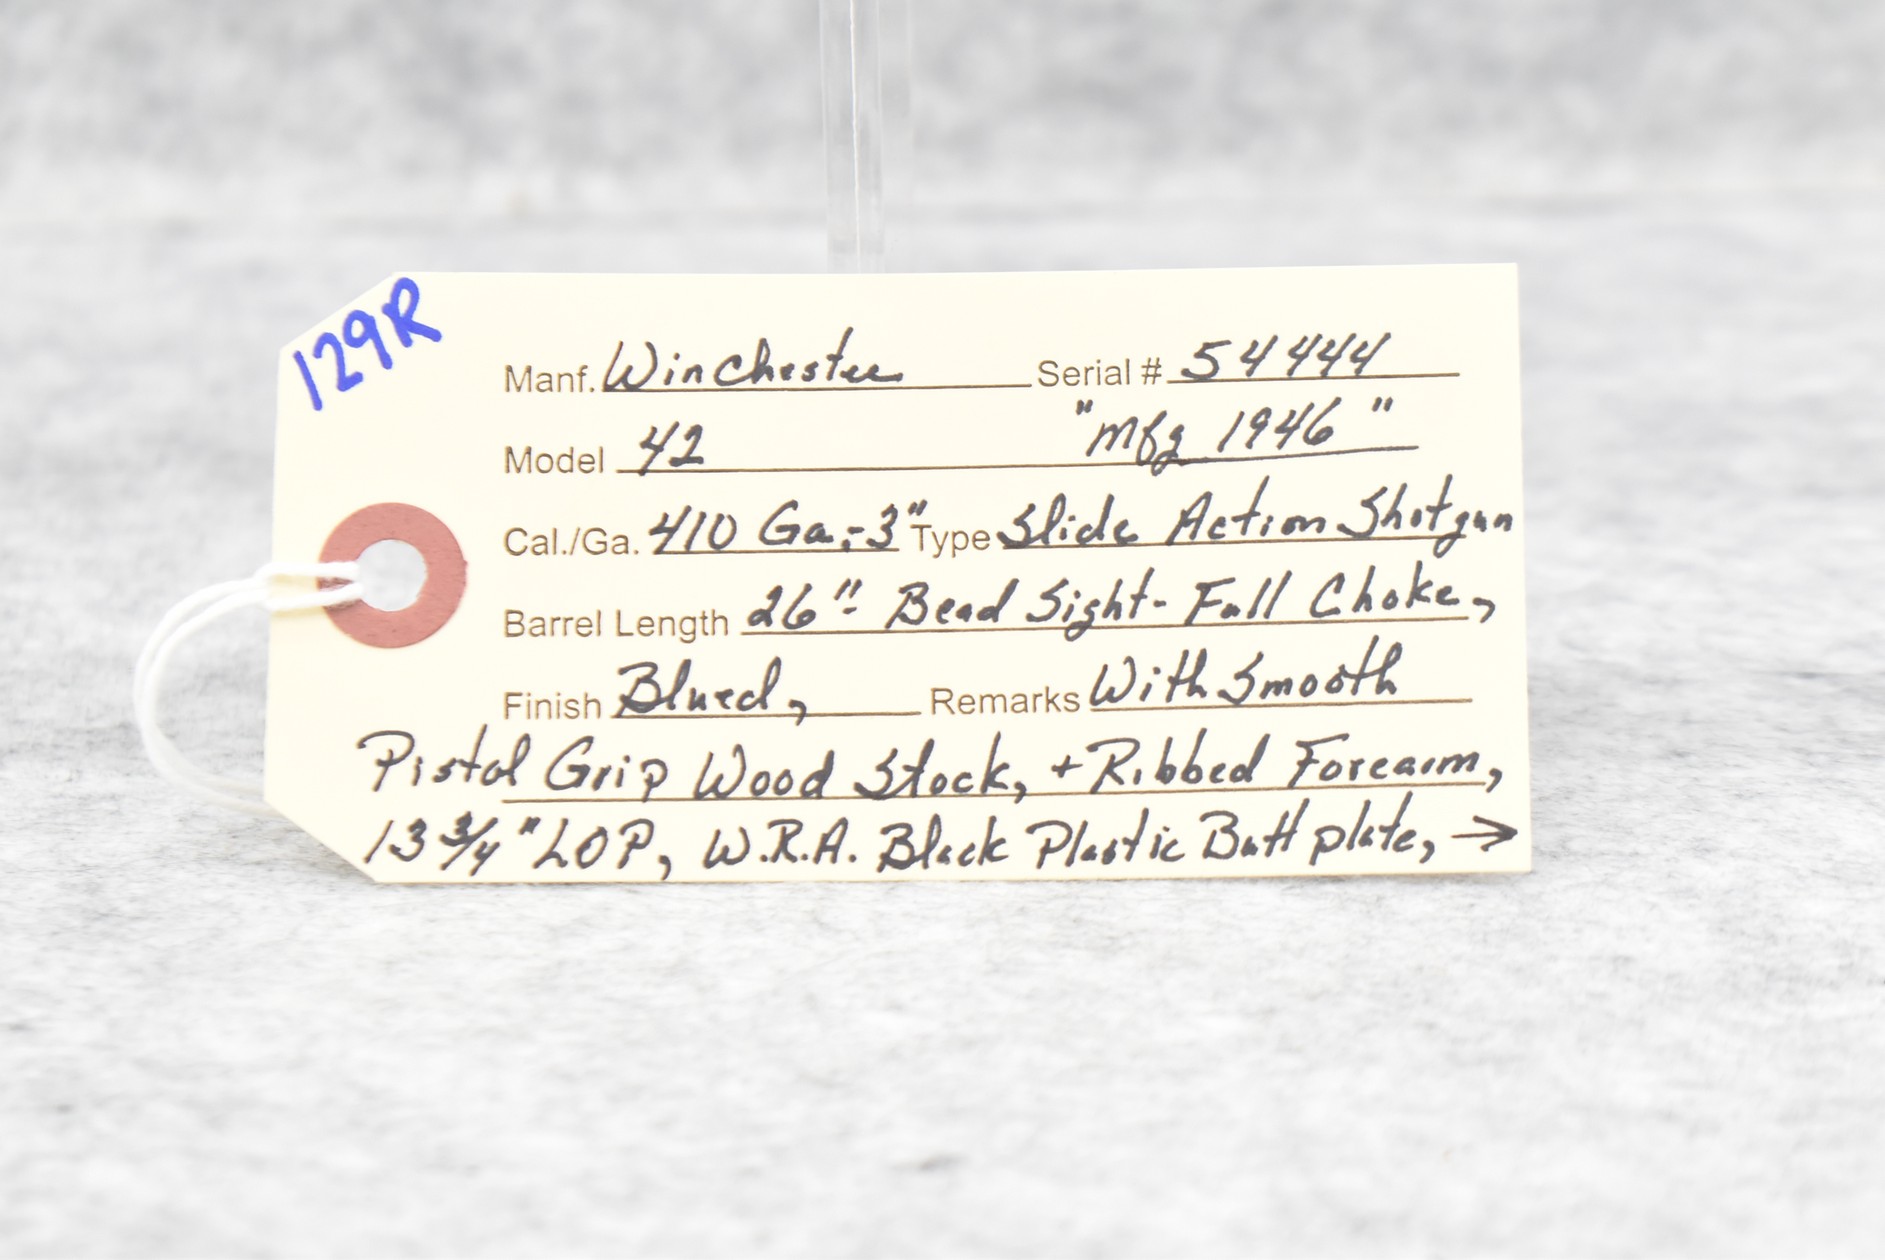 129R
Manf. Winchester Serial # 54444
Model 42 "Mfg 1946"
Cal./Ga. 410 Ga.-3" Type Slide Action Shotgun
Barrel Length 26"- Bead Sight- Full Choke,
Finish Blued, Remarks With Smooth
Pistol Grip Wood Stock, + Ribbed Forearm,
13 3/4" LOP, W.R.A. Black Plastic Butt plate, →